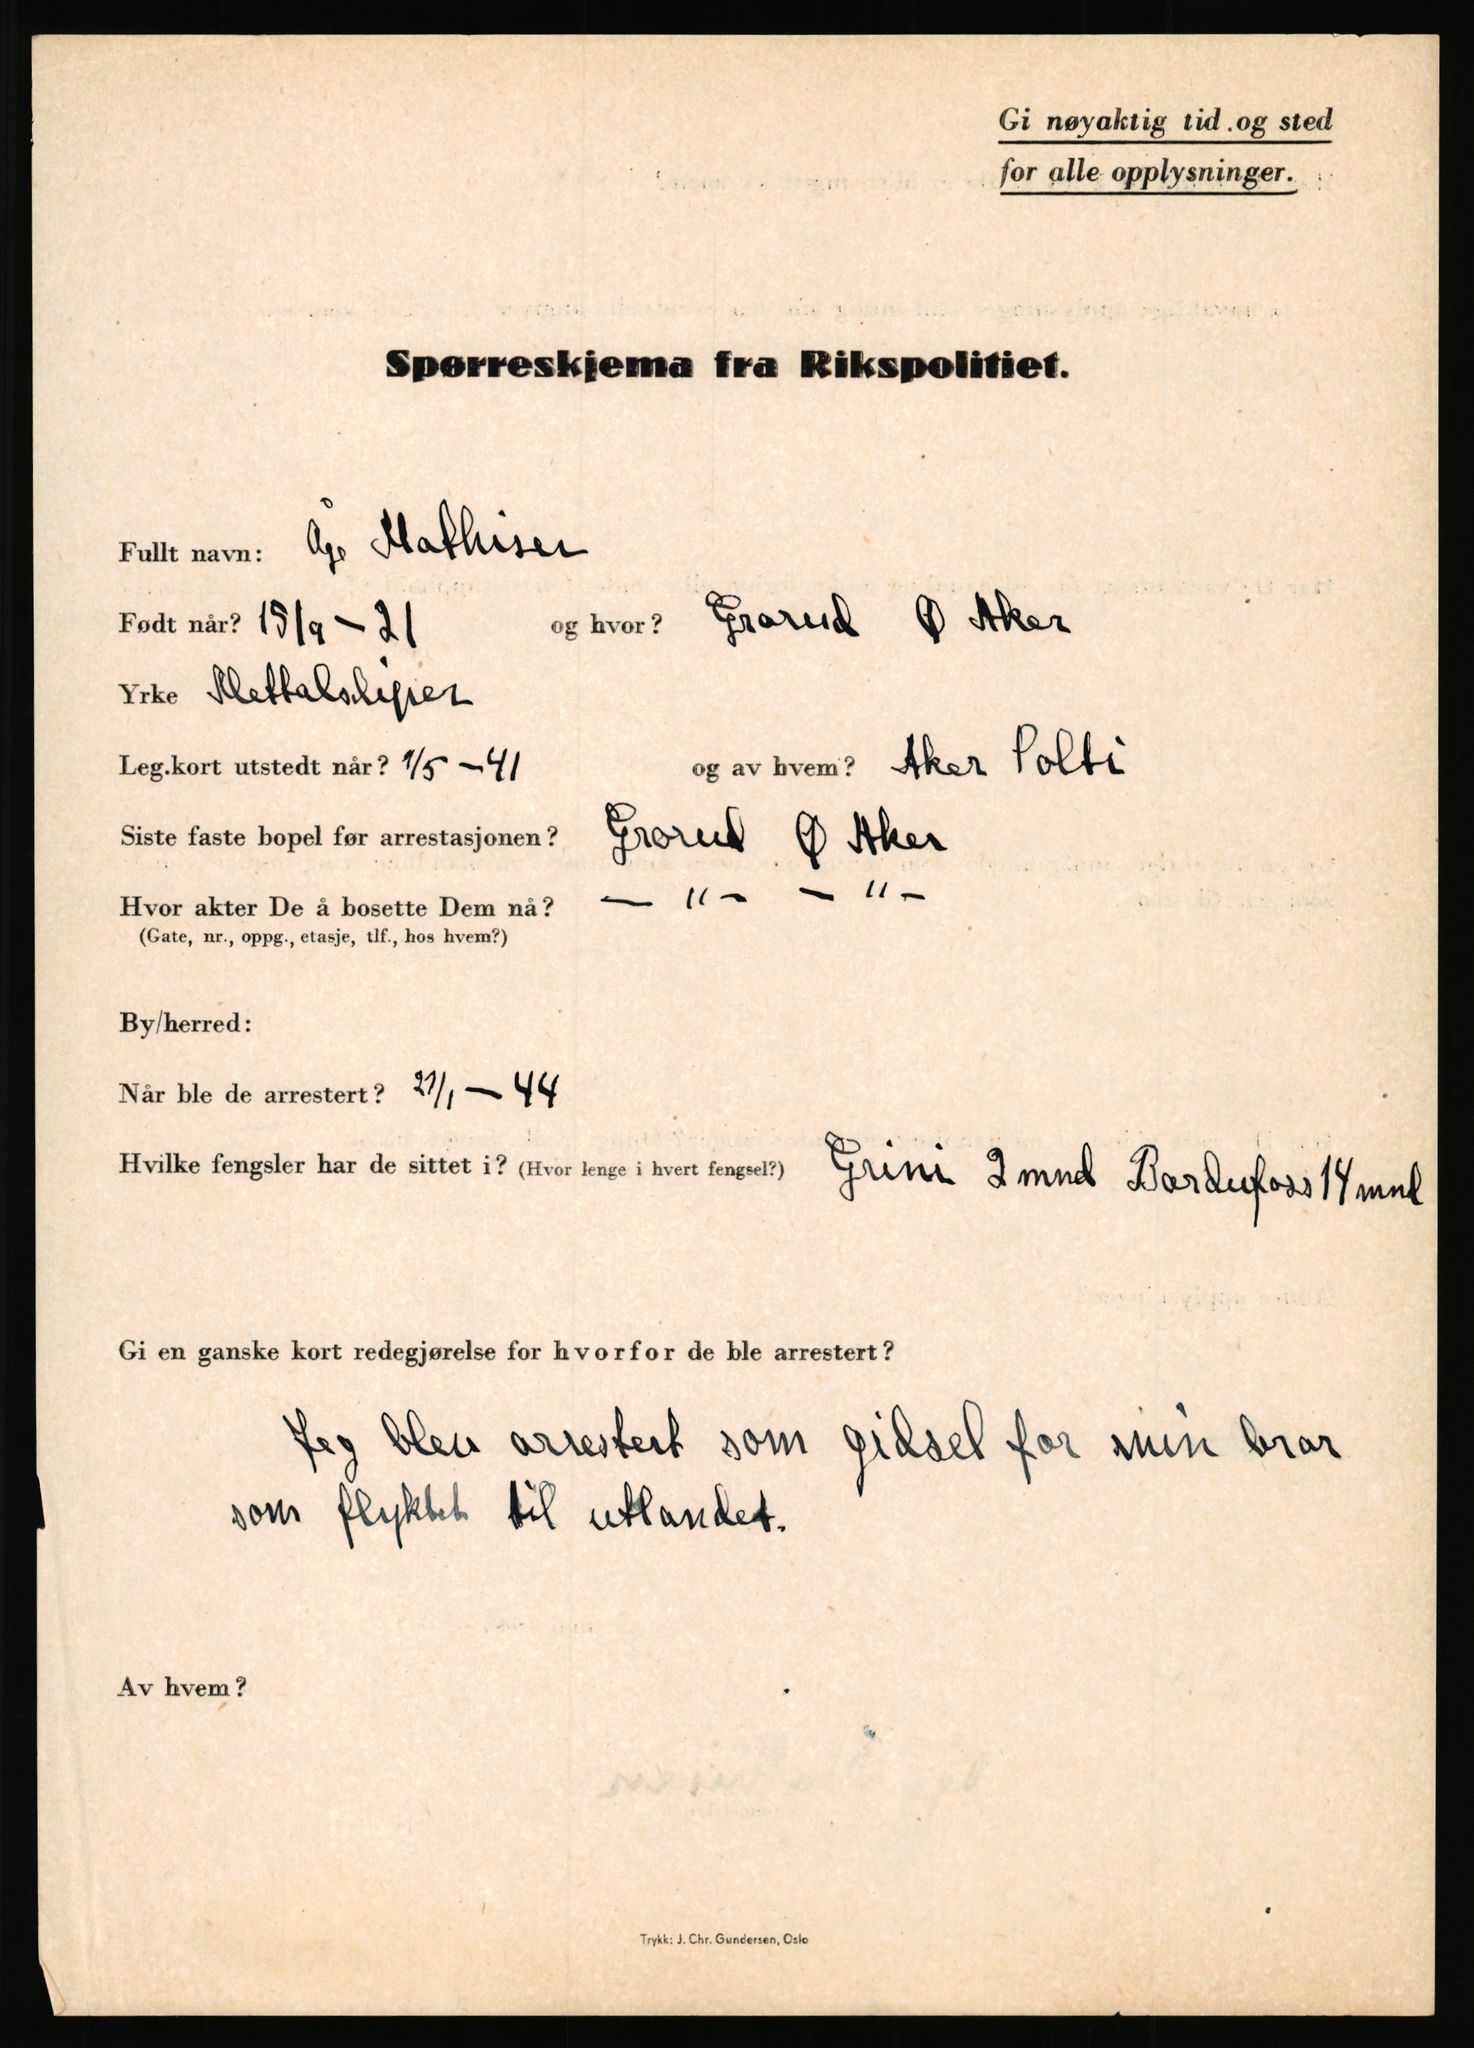 Gi nøyaktig tid og sted
for alle opplysninger.
Spørreskjema fra Rikspolitiet.
Fullt navn: Åge Mathisen
Født når? 15/9 – 21 og hvor? Grorud Ø Aker
Yrke Mettalsliper
Leg.kort utstedt når? 1/5 – 41 og av hvem? Aker Politi
Siste faste bopel før arrestasjonen? Grorud Ø Aker
Hvor akter De å bosette Dem nå? — " – – " –
(Gate, nr., oppg., etasje, tlf., hos hvem?)
By/herred:
Når ble de arrestert? 27/1 – 44
Hvilke fengsler har de sittet i? (Hvor lenge i hvert fengsel?) Grini 2 mnd Bardufoss 14 mnd
Gi en ganske kort redegjørelse for hvorfor de ble arrestert?
Jeg blev arrestert som gidsel for min bror
som flyktet til utlandet.
Av hvem?
Trykk: J. Chr. Gundersen, Oslo